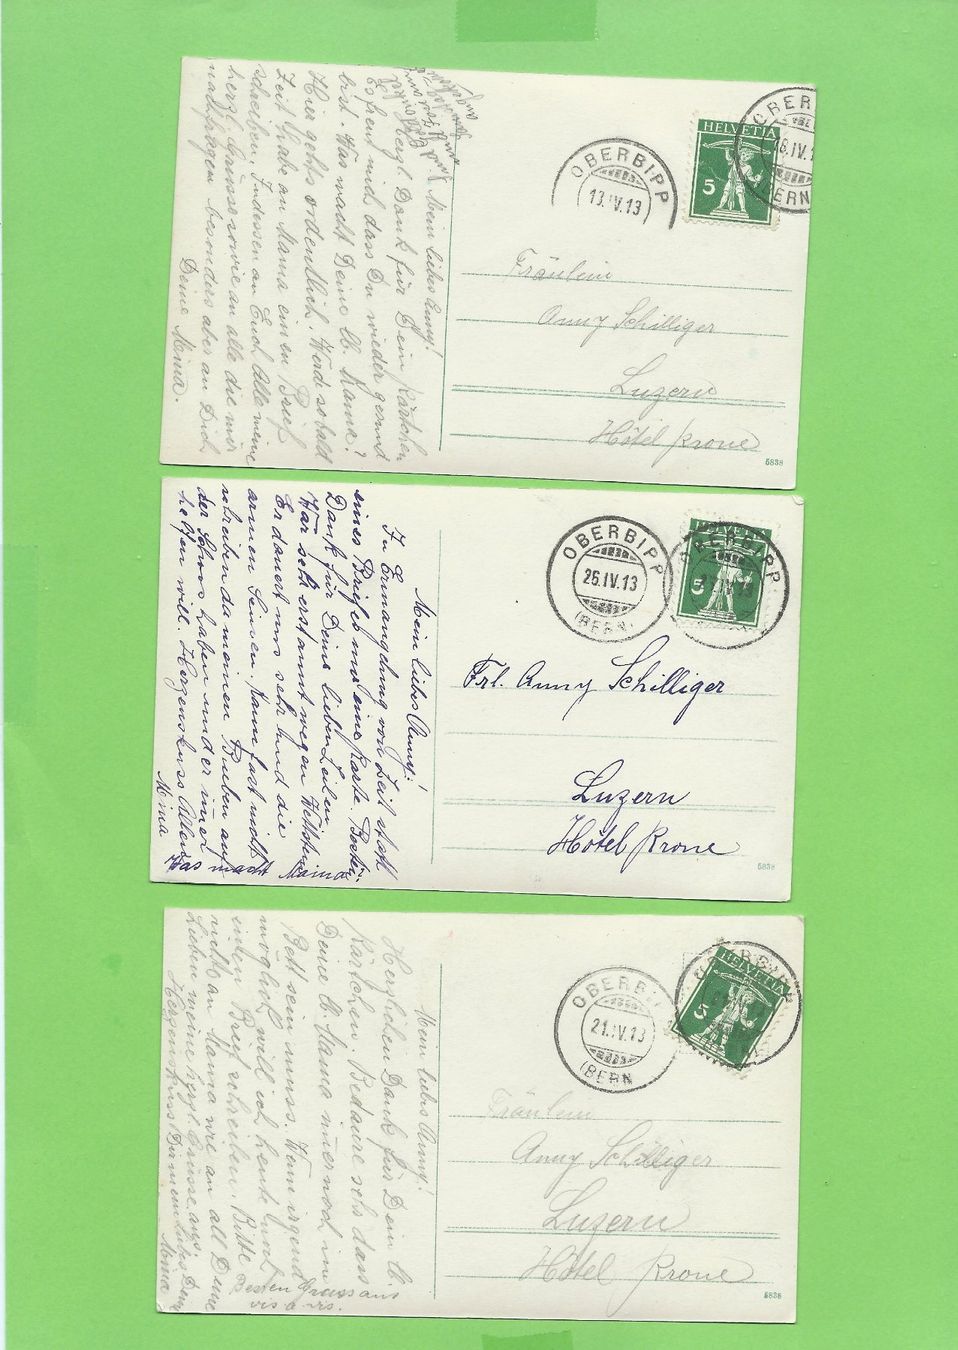 Mein liebes Anny!
Herzl. Dank für Dein Kärtchen
Es freut mich, dass Du wieder gesund
bist. Was macht Deine lb. Mama?
Hier gehts ordentlich. Werde sobald
Zeit habe an Mama einen Brief
schreiben. Indessen an Euch Alle meine
herzl. Grüsse sowie an alle die mir
nachfragen besonders aber an Dich
Deine Mima.
OBERBIPP
13.IV.13
HELVETIA
5
OBER
IV.1
ERN
Fräulein
Anny Schilliger
Luzern
Hôtel Krone
5838
Mein liebes Anny!
In Ermangelung von Zeit statt
eines Briefes nur eine Karte. Besten
Dank für Deine lieben Zeilen
War sehr erstaunt wegen
Er dauert mich sehr und die
armen Seinen. Kann fast nicht
schreiben da meinen Buben auf
der Schoss haben und er imer
helfen will. Herzenskuss Allen
Mima
Was macht Mama?
OBERBIPP
26.IV.13
(BERN)
HELVETIA
5
OBERBIPP
IV.13
Frl. Anny Schilliger
Luzern
Hôtel Krone
5838
Mein liebes Anny!
Herzlichen Dank für Dein lb.
Kärtchen. Bedaure sehr dass
Deine lb. Mama imer noch im
Bett sein muss. Wenn irgend
möglich will ich heute noch
einen Brief schreiben. Bitte
richte an Mama wie an all Deine
Lieben meine herzl. Grüsse aus,
Herzenskuss Dir mein liebes
Mima
Besten Gruss ans
vis à vis.
OBERBI
21.IV.13
(BERN
HELVETIA
5
Fräulein
Anny Schilliger
Luzern
Hôtel Krone
5838